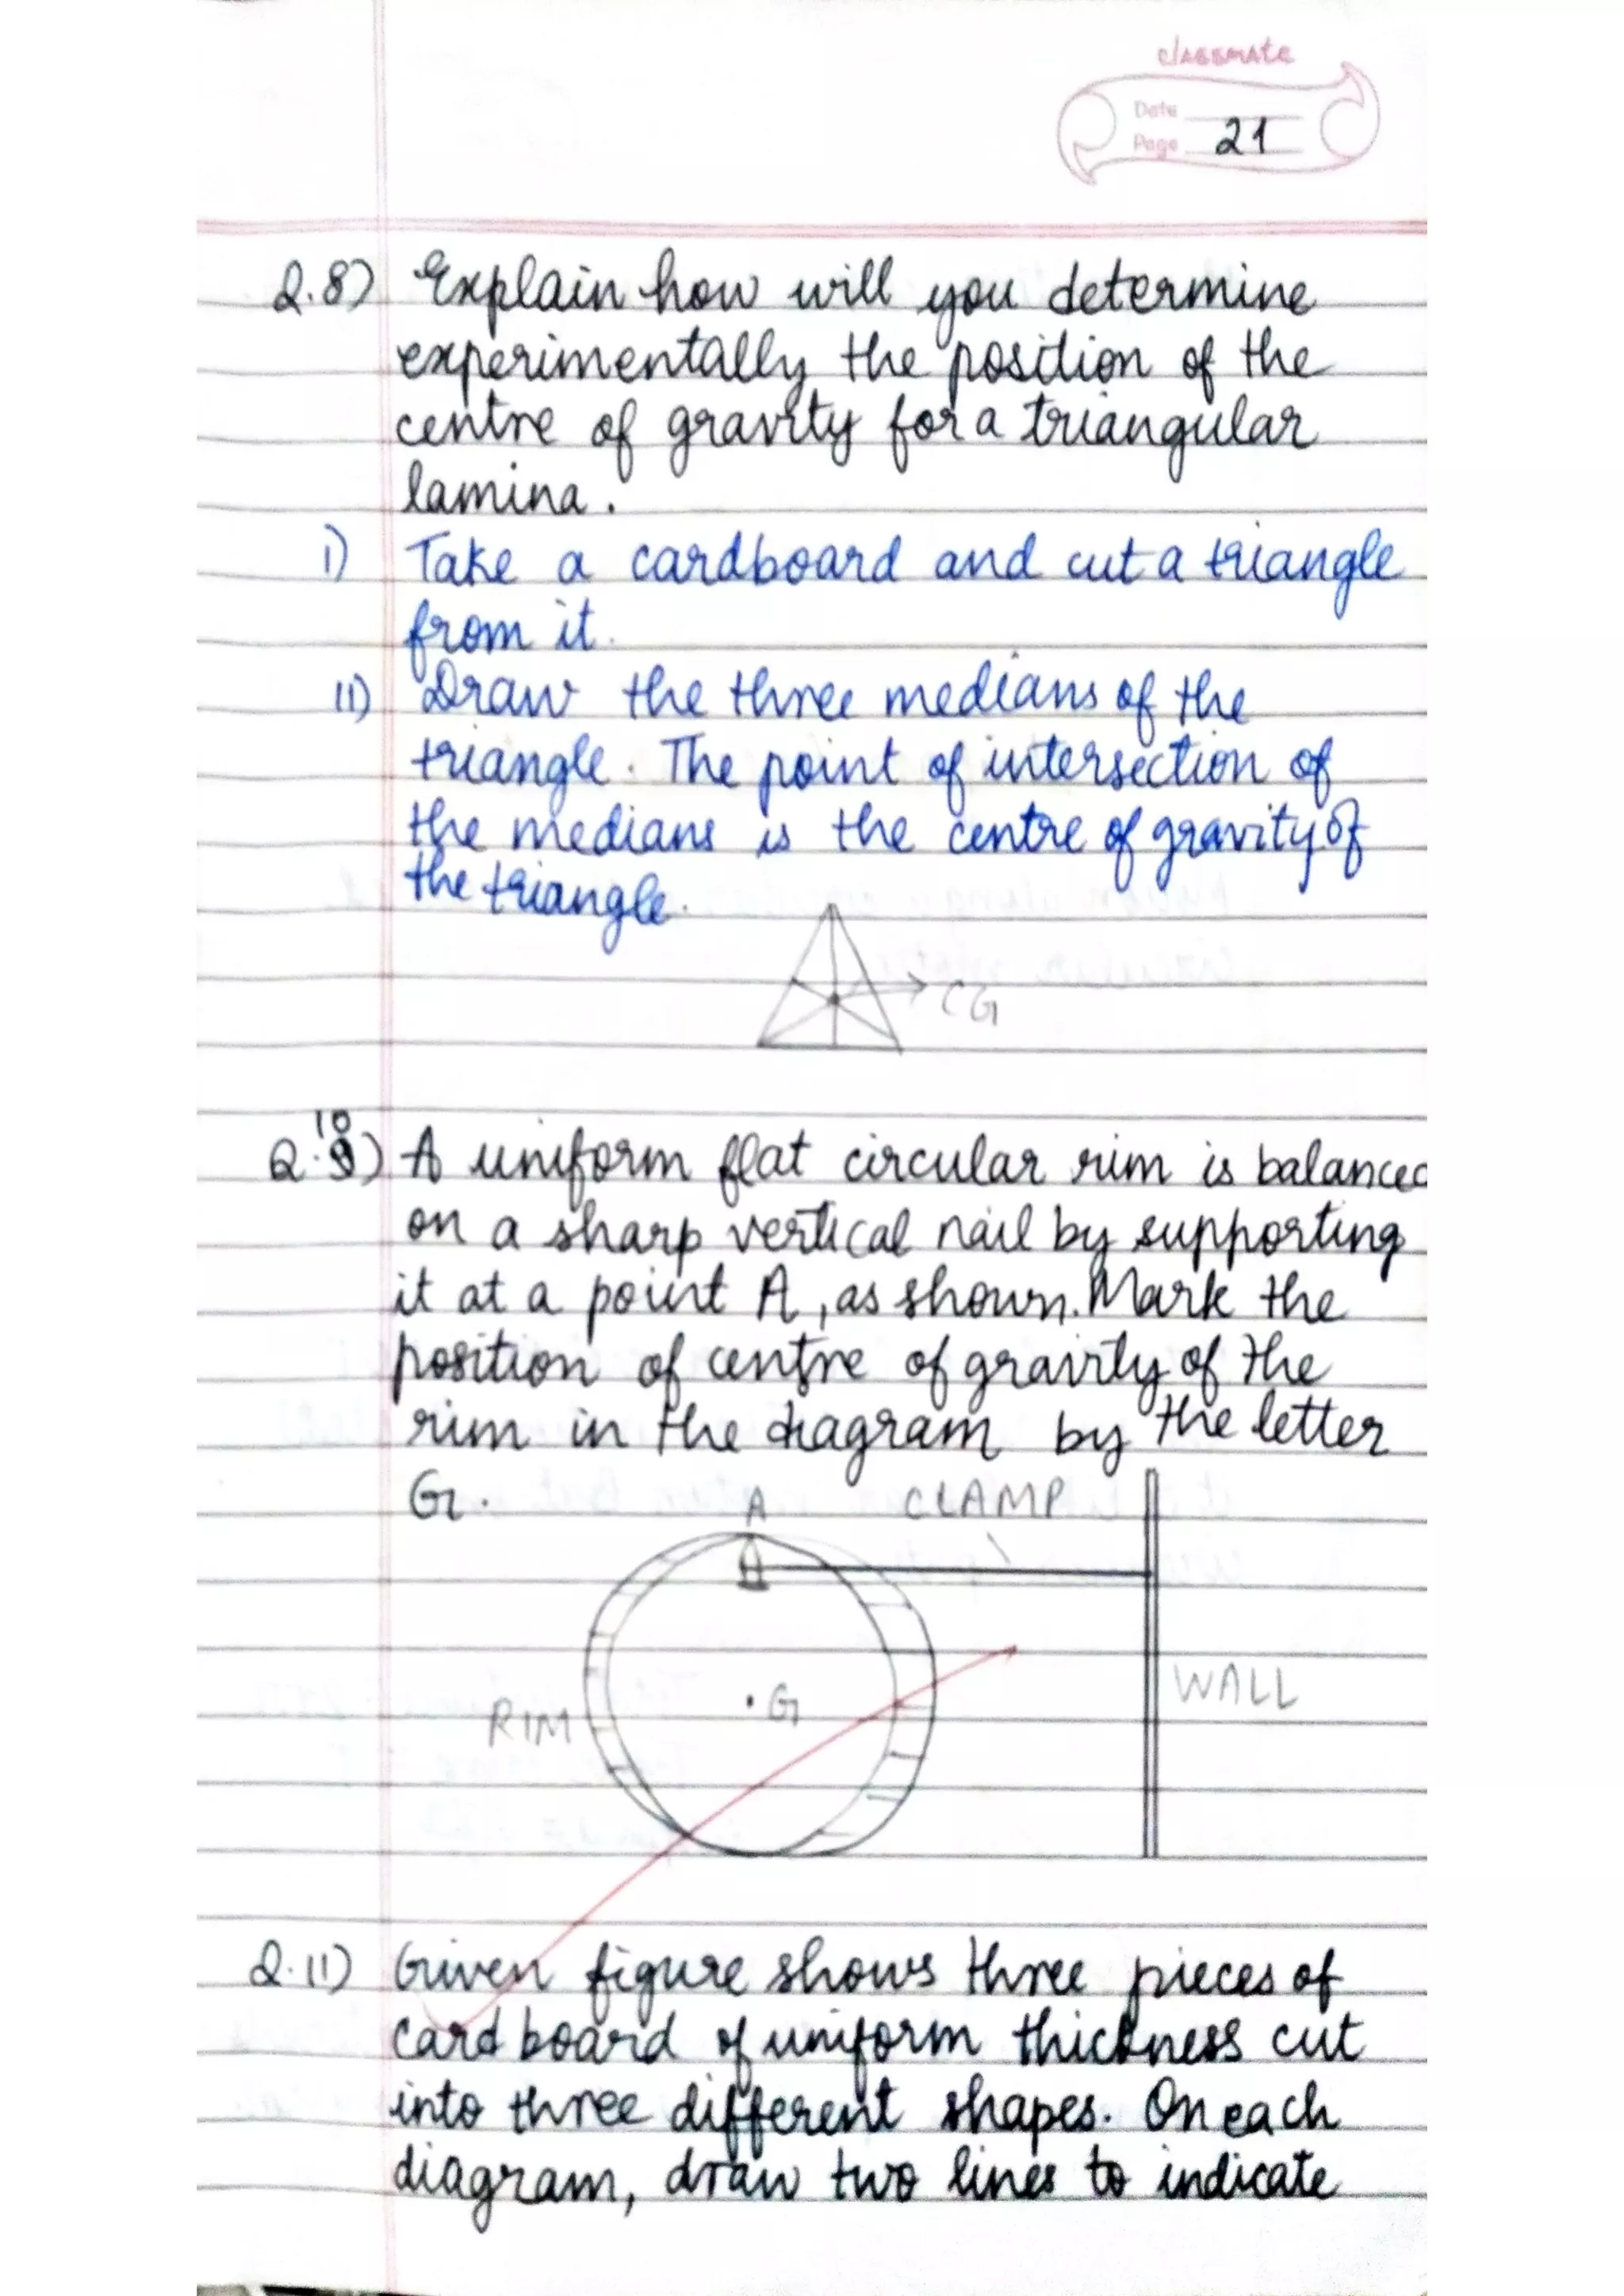 classmate
Date
Page 21
Q.8) Explain how will you determine
experimentally the position of the
centre of gravity for a triangular
lamina.
i) Take a cardboard and cut a triangle
from it.
ii) Draw the three medians of the
triangle. The point of intersection of
the medians is the centre of gravity of
the triangle.
CG
10
Q.9) A uniform flat circular rim is balanced
on a sharp vertical nail by supporting
it at a point A, as shown. Mark the
position of centre of gravity of the
rim in the diagram by the letter
G.
A CLAMP
G
WALL
RIM
Q.11) Given figure shows three pieces of
cardboard of uniform thickness cut
into three different shapes. On each
diagram, draw two lines to indicate